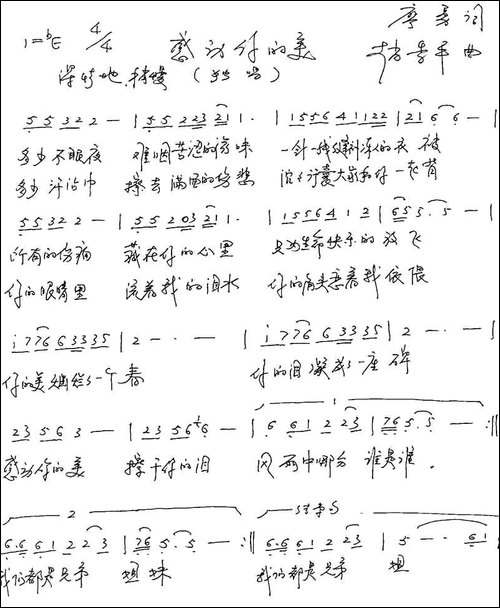 1=bE 4/4 感动你的美 词
深情地 稍慢 (独唱) 曲
5 5 3 2 2 — | 5 5 2 2 3 2 1 1. | 1 5 5 6 4 1 1 2 2 | 2 1 6 6 — |
多少不眠夜 难咽苦涩的滋味 一针一线缝补 的衣被
多少汗沾巾 擦去满面的伤悲 大家和你一起背
5 5 3 2 2 — | 5 5 2 0 3 2 1 1 | 1 5 5 6 4 1 2 | 6 5 5. 5 — |
所有的伤痛 藏在你的心里 只为生命快乐的放飞
你的眼睛里 流着我的泪水 你的肩头 着我依偎
i 7 7 6 6 3 3 3 5 | 2 — · — | i 7 7 6 6 3 3 3 5 | 2 — · — |
你的美 一个春 你的泪凝成了一座碑
2 3 5 6 3 — | 2 3 5 6 6 — | 6 6 1 2 2 3 | 7 6 5. 5 — :||
感动你的美 擦干你的泪 风雨中哪分谁是谁.
2 结束句
6. 6 6 1 2 2 3 | 7 6 5. 5 — :|| 6. 6 6 1 2 2 3 | 5 — · · 6 1
我们都是兄弟 姐妹 我们都是兄弟 姐